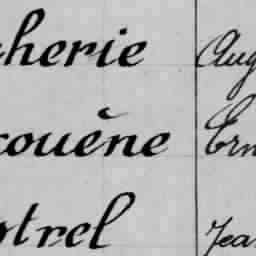 cherie Aug
couëne Ern
otrel Jea